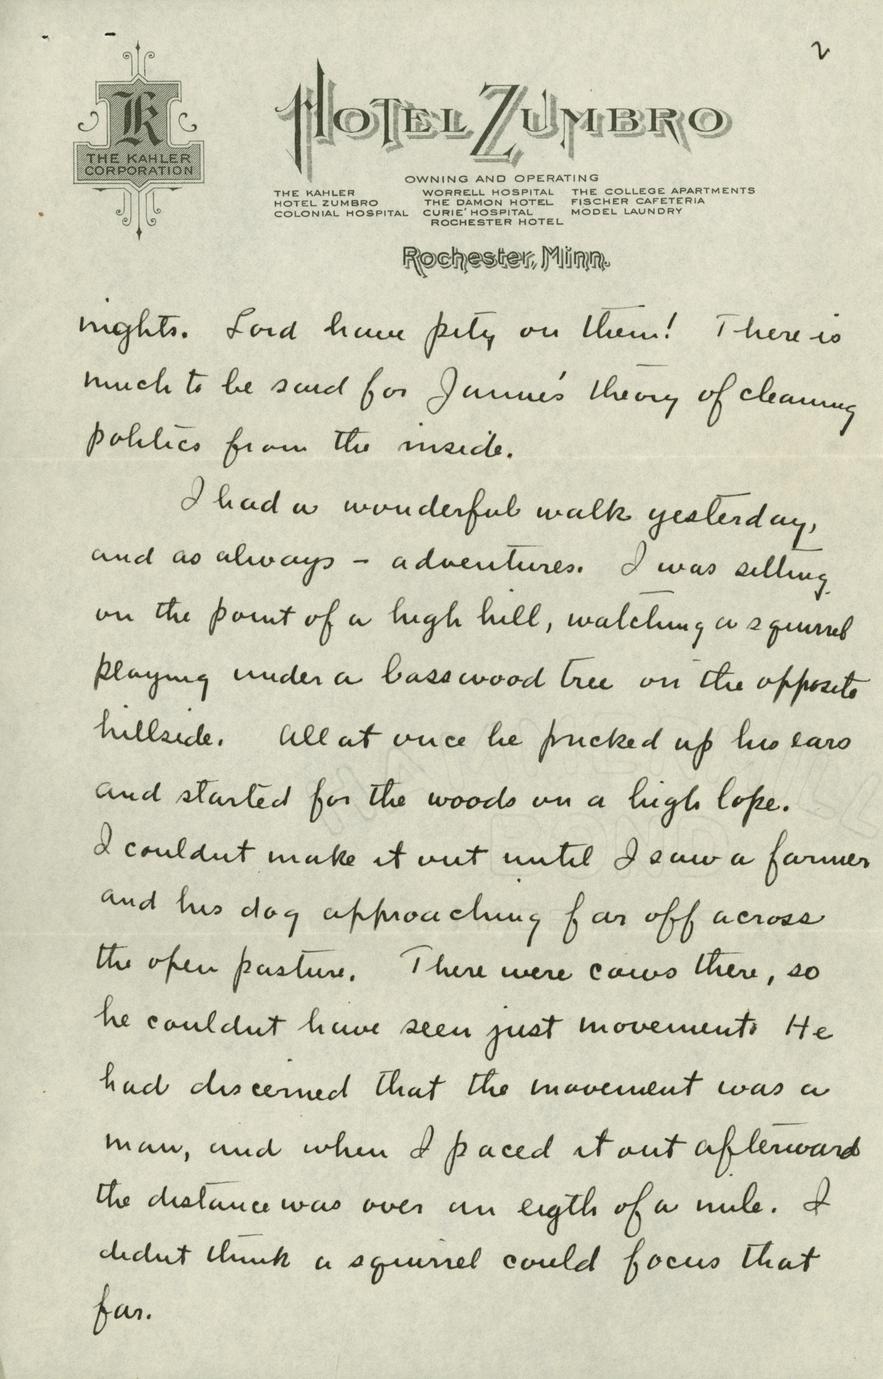 2
K
THE KAHLER
CORPORATION
HOTEL ZUMBRO
OWNING AND OPERATING
THE KAHLER WORRELL HOSPITAL THE COLLEGE APARTMENTS
HOTEL ZUMBRO THE DAMON HOTEL FISCHER CAFETERIA
COLONIAL HOSPITAL CURIE' HOSPITAL MODEL LAUNDRY
ROCHESTER HOTEL
Rochester, Minn.
nights. Lord have pity on them! There is
much to be said for theory of cleaning
politics from the inside.
I had a wonderful walk yesterday,
and as always - adventures. I was sitting
on the point of a high hill, watching a squirrel
playing under a basswood tree on the opposite
hillside. All at once he pricked up his ears
and started for the woods on a high lope.
I couldnt make it out until I saw a farmer
and his dog approaching far off across
the open pasture. There were cows there, so
he couldnt have seen just movement. He
had discerned that the movement was a
man, and when I paced it out afterward
the distance was over an eigth of a mile. I
didnt think a squirrel could focus that
far.